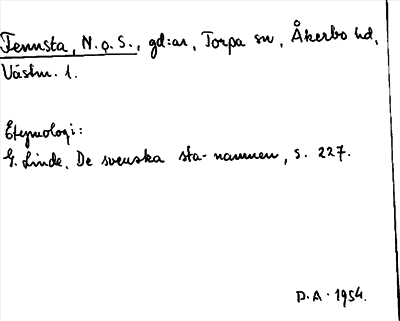 Tennsta, N. o. S., gd:ar, Torpa sn, Åkerbo hd,
Västm. l.
Etymologi:
G. Linde, De svenska sta-namnen, s. 227.
D.A. 1954.